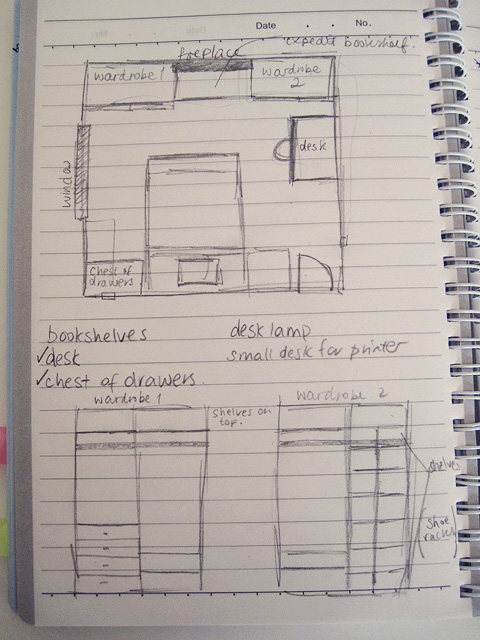 Date . . No.
fireplace
expedit bookshelf.
wardrobe 1
wardrobe 2
desk
window
Chest of drawers
bookshelves
desk lamp
✓desk
small desk for printer
✓chest of drawers
wardrobe 1
shelves on top.
wardrobe 2
shelves
(shoe racks)